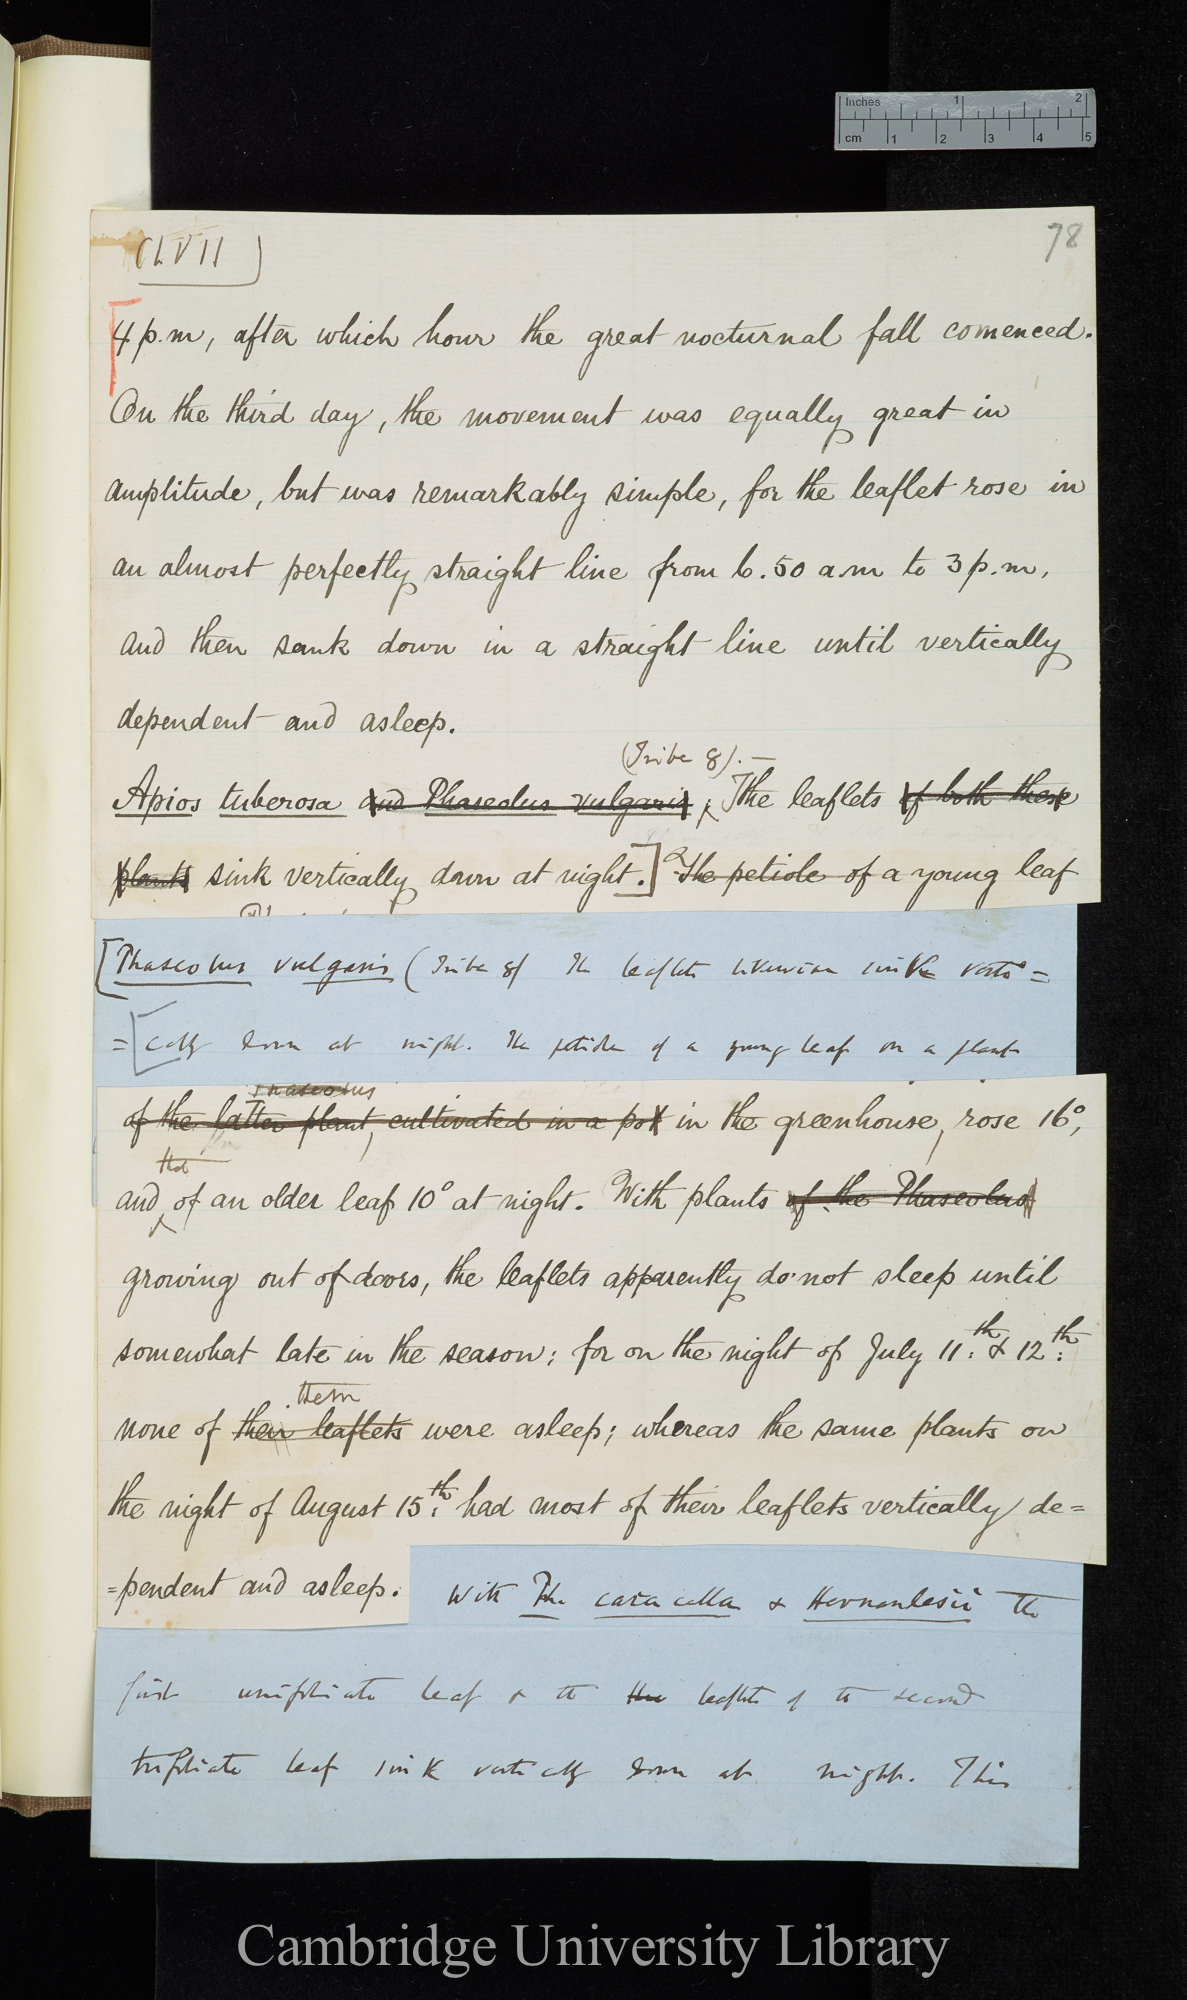 Inches 1 2
cm 1 2 3 4 5
CLVII)
78
4 p.m, after which hour the great nocturnal fall comenced.
On the third day, the movement was equally great in
amplitude, but was remarkably simple, for the leaflet rose in
an almost perfectly straight line from 6.50 a.m to 3 p.m,
and then sank down in a straight line until vertically
dependent and asleep.
(Tribe 8). —
Apios tuberosa and Phaseolus vulgaris, The leaflets of both these
plants sink vertically down at night.] The petiole of a young leaf
[Phaseolus vulgaris (Tribe 8) The leaflets likewise sink verti=
=[cally down at night. The petiole of a young leaf on a plant
Phaseolus
of the latter plant, cultivated in a pot in the greenhouse, rose 16°,
that
and of an older leaf 10° at night. With plants of the Phaseolus
growing out of doors, the leaflets apparently do not sleep until
somewhat late in the season; for on the night of July 11th. & 12th.
them
none of their leaflets were asleep; whereas the same plants on
the night of August 15th. had most of their leaflets vertically de=
=pendent and asleep. With Ph. caracalla & Hernandesii the
first unifoliate leaf & the the leaflets of the second
trifoliate leaf sink vertically down at night. This
Cambridge University Library